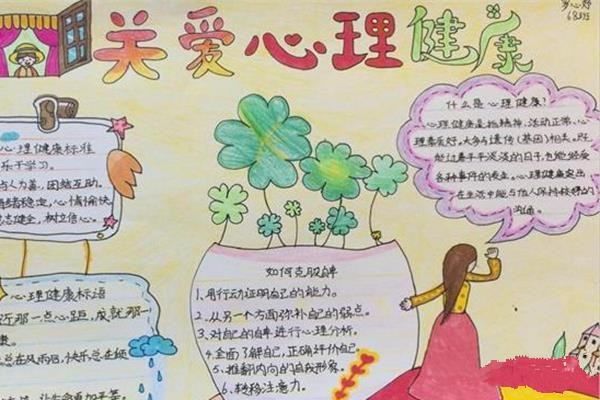 关爱心理健康
心理健康标准
乐于学习。
人为善，团结互助。
绪稳定，心情愉快。
态健全，树立信心。
心理健康标语
近那一点心距，成就那一
康。
总在风雨后，快乐总在倾
让生命更加平等。
如何克服自卑
1、用行动证明自己的能力。
2、从另一个方面弥补自己的弱点。
3、对自己的自卑进行心理分析。
4、全面了解自己，正确评价自己
5、推翻内向的自我形容。
6、转移注意力。
什么是心理健康？
心理健康是指精神、活动正常、心
理素质好。大多与遗传（基因）相关。好
能过着平平淡淡的日子，也能经受
各种事件的发生。心理健康突出
在生活中能与他人保持较好的
沟通。